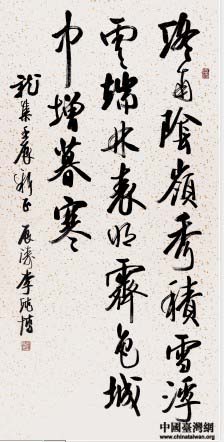 終南陰嶺秀積雪浮
雲端林表明霽色城
中增暮寒
龍集壬辰新正 李
中國臺灣網
www.chinataiwan.org